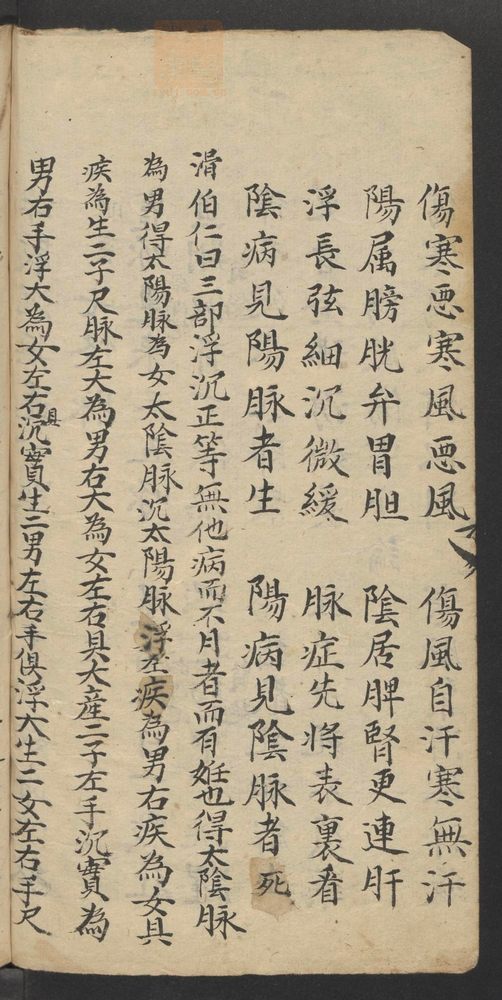 傷寒惡寒風惡風　傷風自汗寒無汗
陽属膀胱弁胃胆　陰居脾腎更連肝
浮長弦細沉微緩　脉症先将表裏看
陰病見陽脉者生　陽病見陰脉者死
滑伯仁曰三部浮沉正等無他病而不月者而有妊也得太陰脉
為男得太陽脉為女太陰脉沉太陽脉浮左疾為男右疾為女具
疾為生二子尺脉左大為男右大為女左右具大産二子左手沉實為
男右手浮大為女左右具沉實生二男左右手俱浮大生二女左右手尺